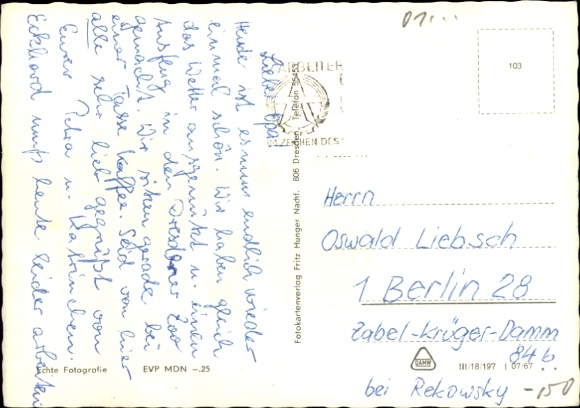 Lieber Opa
Heute ist es nun endlich wieder
einmal schön. Wir haben gleich
das Wetter ausgenützt u. einen
Ausflug in den Dresdner Zoo
gemacht. Wir sitzen gerade bei
einer Tasse Kaffee. Seid von hier
alle sehr lieb gegrüßt von
Eurer Petra u. Katrinchen.
Eckhard muß heute leider arbeiten
Echte Fotografie
EVP MDN –.25
Fotokartenverlag Fritz Hunger Nachf. 806 Dresden, Telefon
ARBEITER
IM ZEICHEN DES
103
Herrn
Oswald Liebsch
1 Berlin 28
Zabel-Krüger-Damm
84 b
bei Rekowsky
III/18/197 07/67
-150